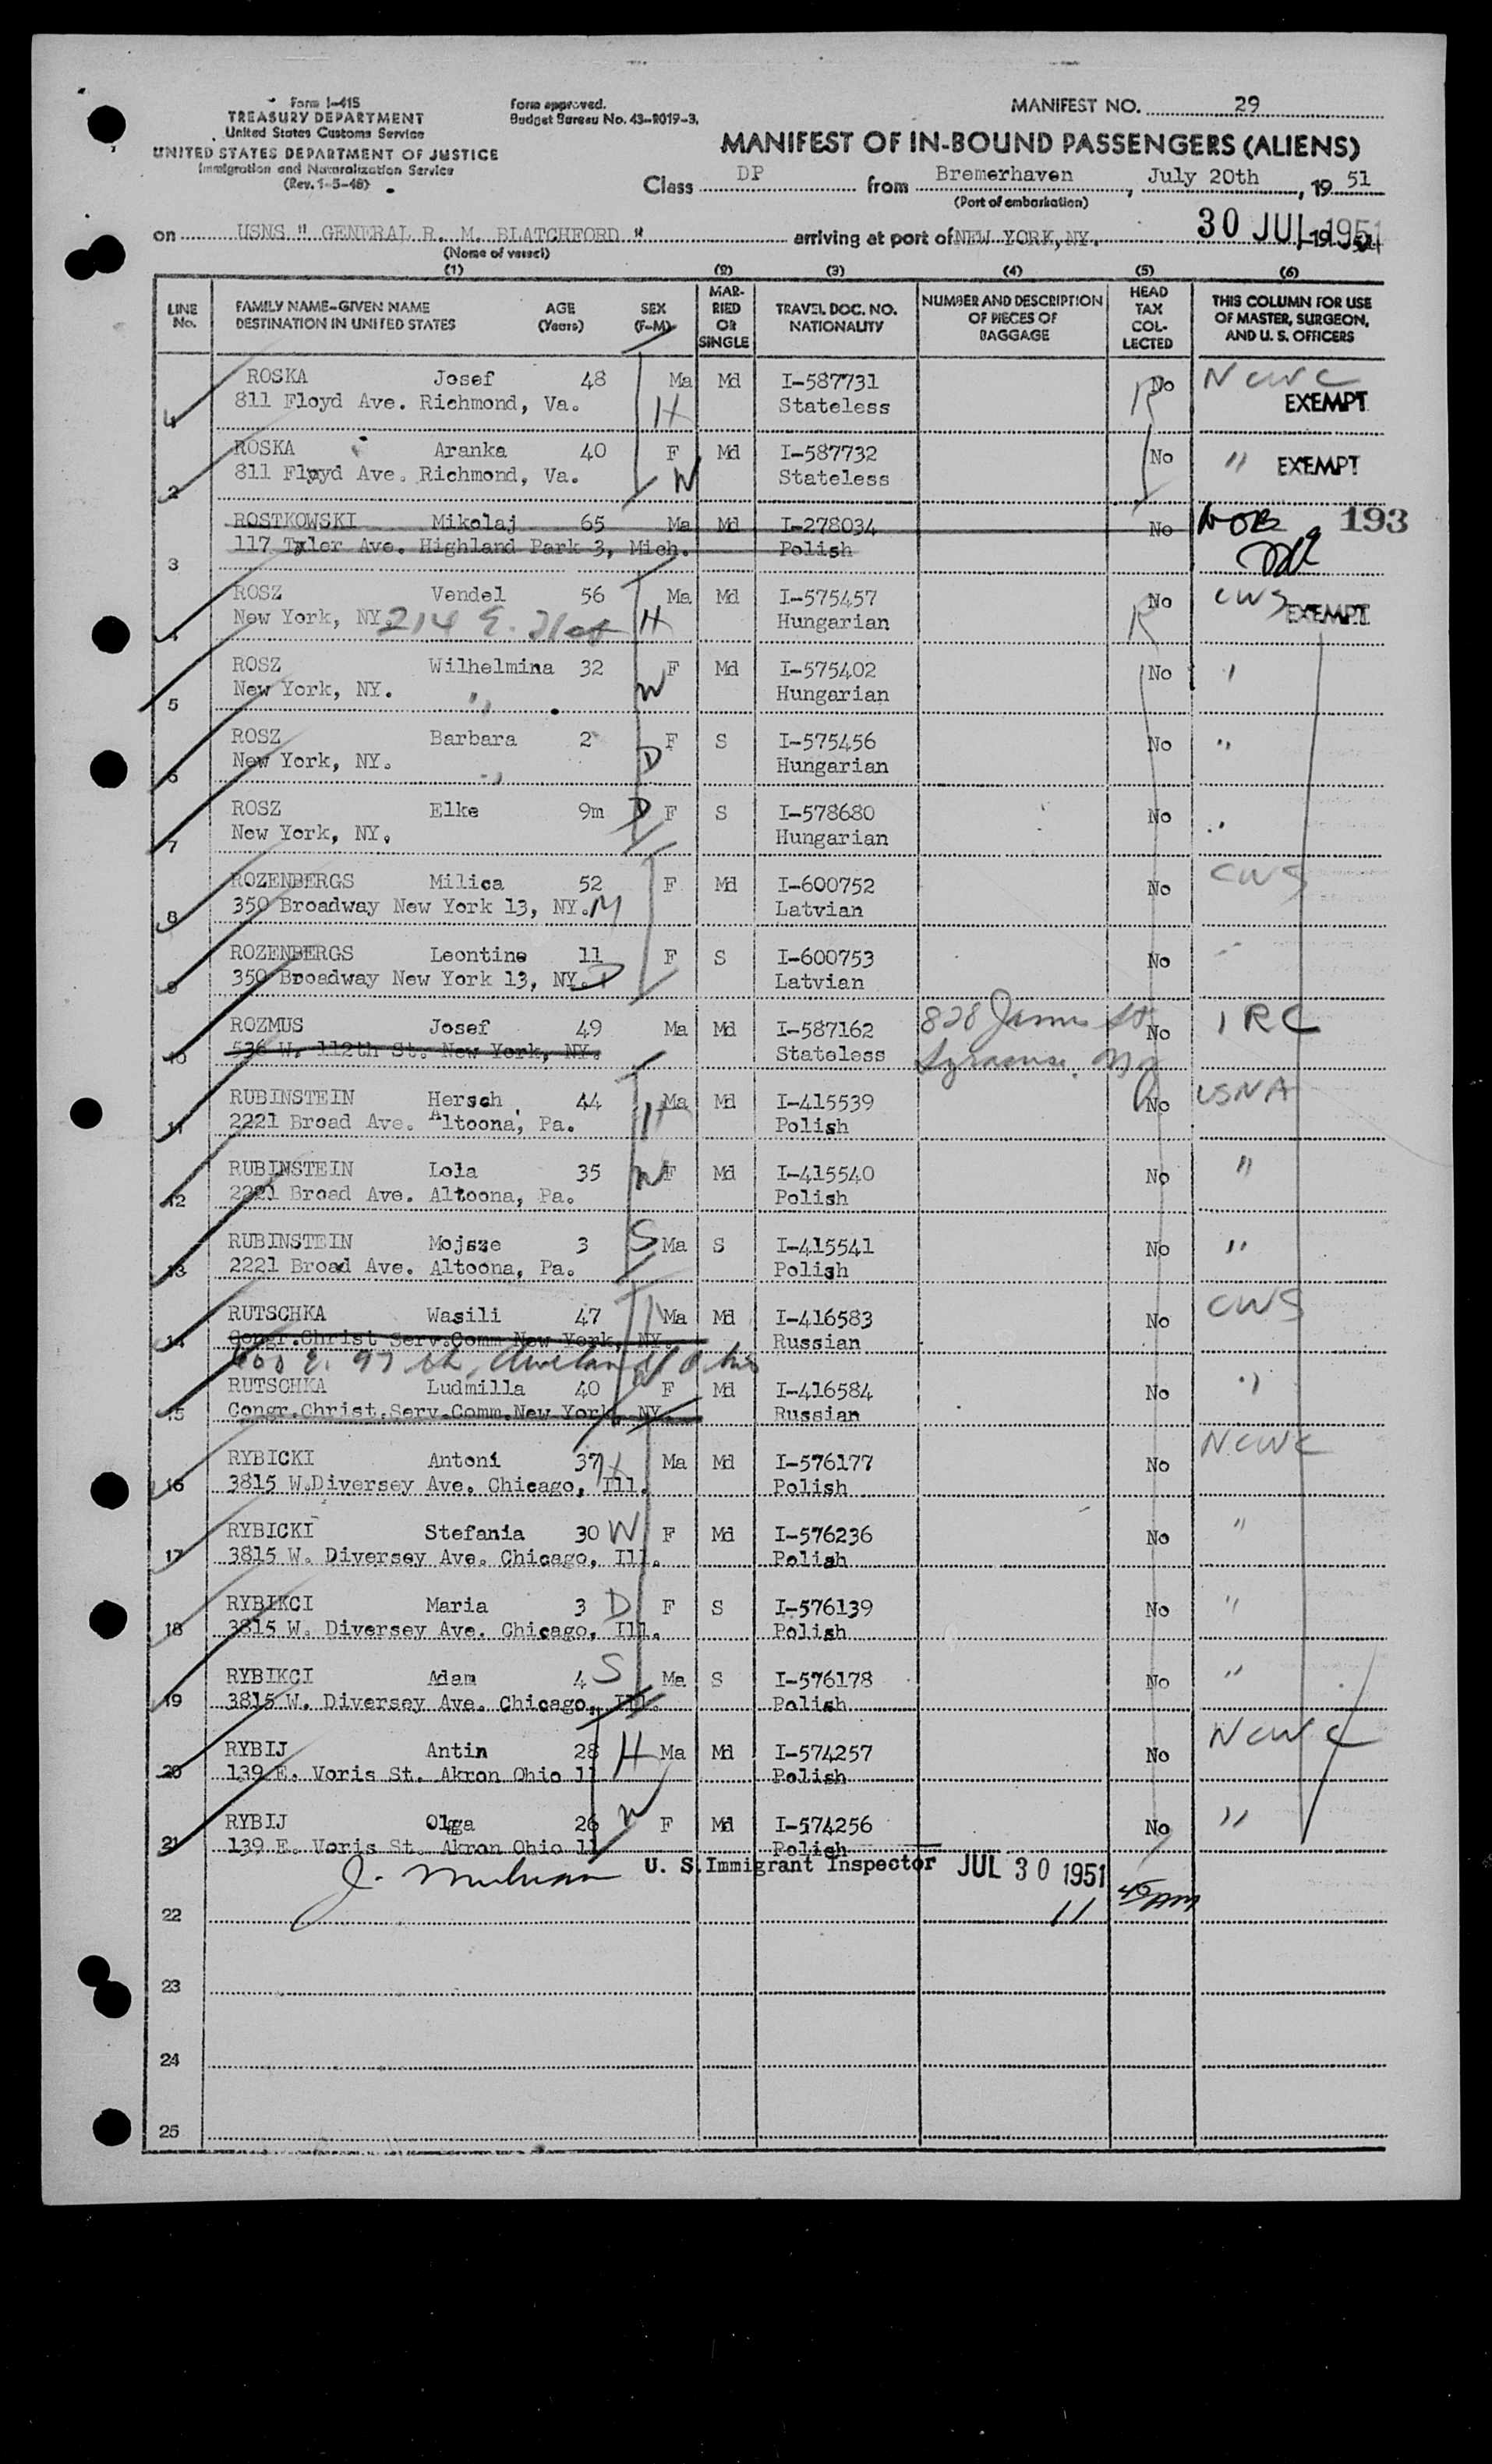 Form I-415
TREASURY DEPARTMENT
United States Customs Service
UNITED STATES DEPARTMENT OF JUSTICE
Immigration and Naturalization Service
(Rev. 1-5-48)
Form approved.
Budget Bureau No. 43-R019-3.
MANIFEST NO. 29
MANIFEST OF IN-BOUND PASSENGERS (ALIENS)
Class DP from Bremerhaven, July 20th, 19 51
(Port of embarkation)
on USNS " GENERAL R. M. BLATCHFORD " arriving at port of NEW YORK, NY. 30 JUL 1951
(Name of vessel)
(1) (2) (3) (4) (5) (6)
LINE No. FAMILY NAME-GIVEN NAME DESTINATION IN UNITED STATES AGE (Years) SEX (F-M) MARRIED OR SINGLE TRAVEL DOC. NO. NATIONALITY NUMBER AND DESCRIPTION OF PIECES OF BAGGAGE HEAD TAX COLLECTED THIS COLUMN FOR USE OF MASTER, SURGEON, AND U. S. OFFICERS
ROSKA Josef 48 Ma Md I-587731 No NCWC
811 Floyd Ave. Richmond, Va. H Stateless R EXEMPT
ROSKA Aranka 40 F Md I-587732 No " EXEMPT
2 811 Floyd Ave. Richmond, Va. W Stateless
ROSTKOWSKI Mikolaj 65 Ma Md I-278034 No NOB 193
3 117 Tyler Ave. Highland Park 3, Mich. Polish
ROSZ Vendel 56 Ma Md I-575457 No CWS
4 New York, NY. 214 E. 21st H Hungarian R EXEMPT
ROSZ Wilhelmina 32 F Md I-575402 No "
5 New York, NY. " W Hungarian
ROSZ Barbara 2 F S I-575456 No "
6 New York, NY. " D Hungarian
ROSZ Elke 9m D F S I-578680 No "
7 New York, NY. Hungarian
ROZENBERGS Milica 52 F Md I-600752 No CWS
8 350 Broadway New York 13, NY. M Latvian
ROZENBERGS Leontine 11 F S I-600753 No "
9 350 Broadway New York 13, NY. D Latvian
ROZMUS Josef 49 Ma Md I-587162 828 James St. No IRC
10 536 W. 112th St. New York, NY. Stateless Syracuse, NY
RUBINSTEIN Hersch 44 Ma Md I-415539 No USNA
11 2221 Broad Ave. Altoona, Pa. H Polish
RUBINSTEIN Lola 35 W F Md I-415540 No "
12 2221 Broad Ave. Altoona, Pa. Polish
RUBINSTEIN Mojsze 3 S Ma S I-415541 No "
13 2221 Broad Ave. Altoona, Pa. Polish
RUTSCHKA Wasili 47 H Ma Md I-416583 No CWS
14 Congr.Christ Serv.Comm New York, NY. Russian
E. 97 St., Cleveland, Ohio
RUTSCHKA Ludmilla 40 W F Md I-416584 No "
15 Congr.Christ.Serv.Comm.New York, NY. Russian
RYBICKI Antoni 37 H Ma Md I-576177 No NCWC
16 3815 W.Diversey Ave. Chicago, Ill. Polish
RYBICKI Stefania 30 W F Md I-576236 No "
17 3815 W. Diversey Ave. Chicago, Ill. Polish
RYBIKCI Maria 3 D F S I-576139 No "
18 3815 W. Diversey Ave. Chicago, Ill. Polish
RYBIKCI Adam 4 S Ma S I-576178 No "
19 3815 W. Diversey Ave. Chicago, Ill. Polish
RYBIJ Antin 28 H Ma Md I-574257 No NCWC
20 139 E. Voris St. Akron Ohio 11 Polish
RYBIJ Olga 26 W F Md I-574256 No "
21 139 E. Voris St. Akron Ohio 11 Polish
J. U. S. Immigrant Inspector JUL 30 1951
22 11 45 AM
23
24
25